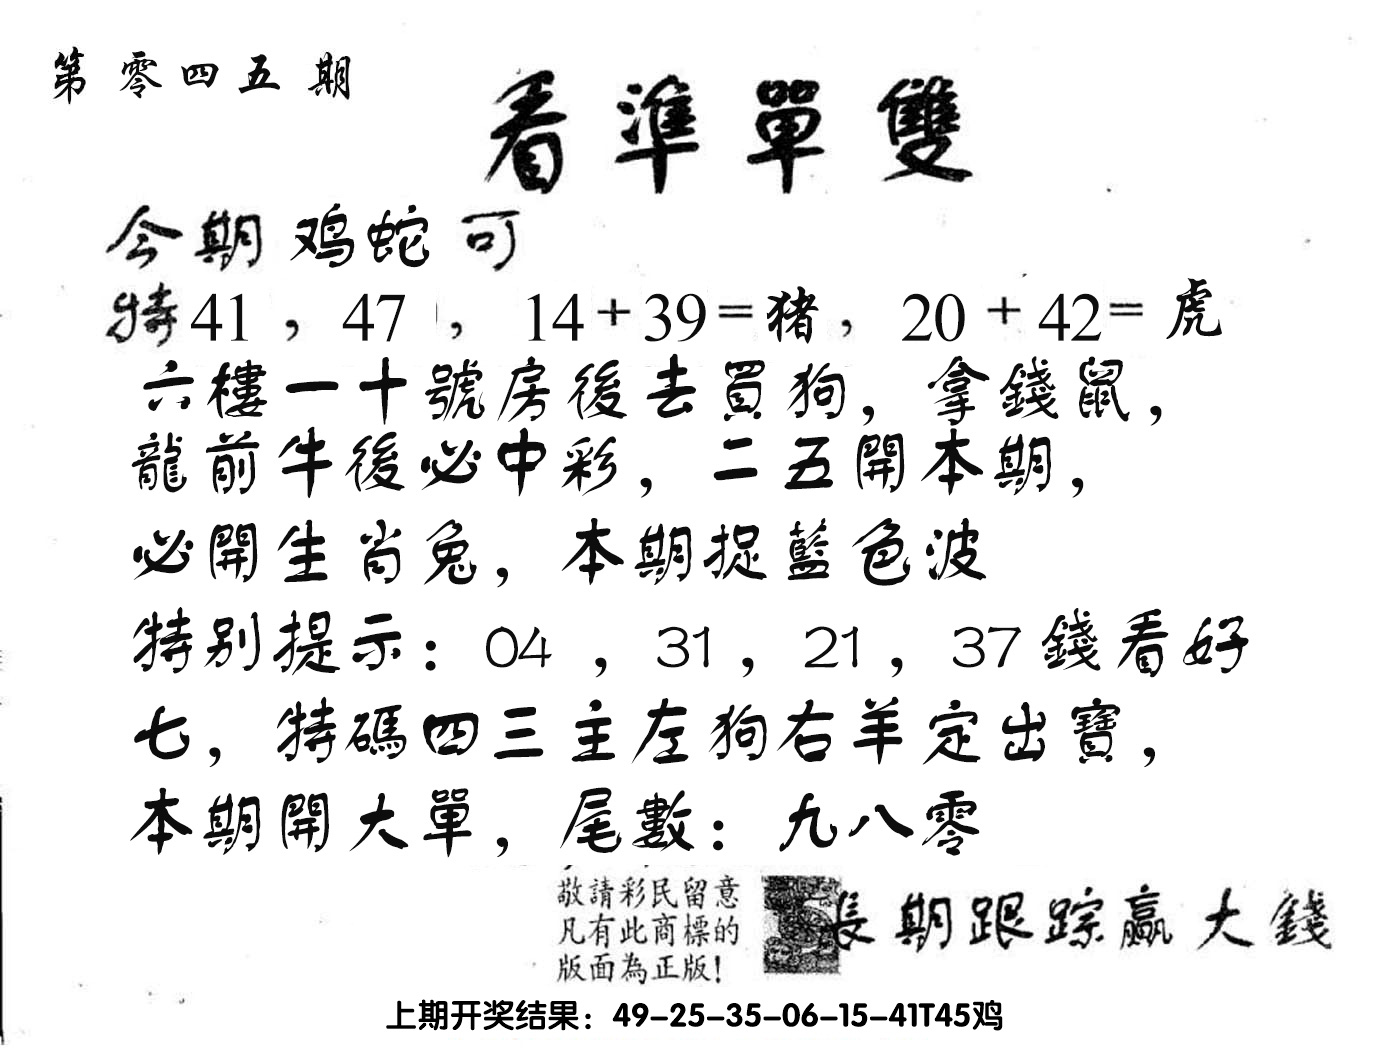 第零四五期
看準單雙
今期鸡蛇可
特41，47，14+39=猪，20+42=虎
六樓一十號房後去買狗，拿錢鼠，
龍前牛後必中彩，二五開本期，
必開生肖兔，本期捉藍色波
特别提示：04，31，21，37錢看好
七，特碼四三主左狗右羊定出寶，
本期開大單，尾數：九八零
敬請彩民留意
凡有此商標的
版面為正版！
長期跟踪赢大錢
上期开奖结果：49-25-35-06-15-41T45鸡